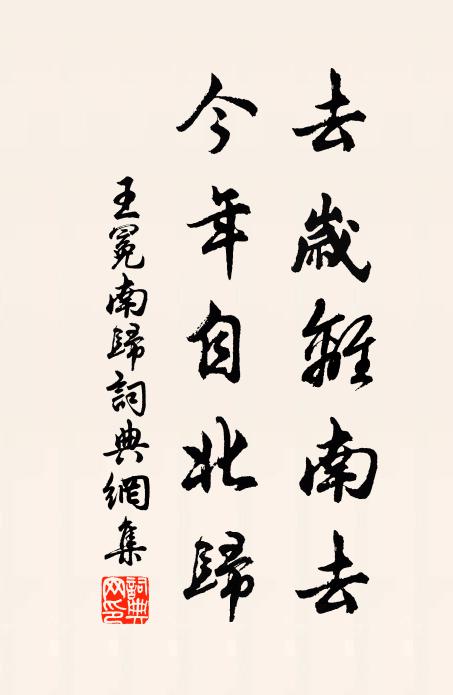 去歲離南去
今年自北歸
王冕南歸詞典網集
詞典網印